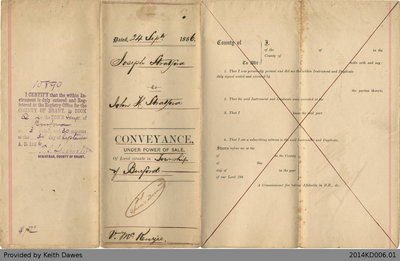 15890
I CERTIFY that the within Instrument is duly entered and Registered in the Registry Office for the
COUNTY OF BRANT, in BOOK
for the TOWNSHIP of
Burford
REGISTRAR, COUNTY OF BRANT.
Dated, 24 Sept 1886
Joseph Stratford
to
John H. Stratford
CONVEYANCE,
UNDER POWER OF SALE.
Of Land situate in Township
of Burford
V. McKenzie
County of
To Wit:
I.
of the
County of
in the
make oath and say:
1. That I was personally present and did see the within Instrument and Duplicate
duly signed sealed and executed by
the parties thereto;
2. That the said Instrument and Duplicate were executed at the
3. That I know the said part
4. That I am a subscribing witness to the said Instrument and Duplicate.
Sworn before me at the
of in the County
of this
day of in the year
of our Lord 188
A Commissioner for taking Affidavits in B.R., &c.
Provided by Keith Dawes
2014KD006.01